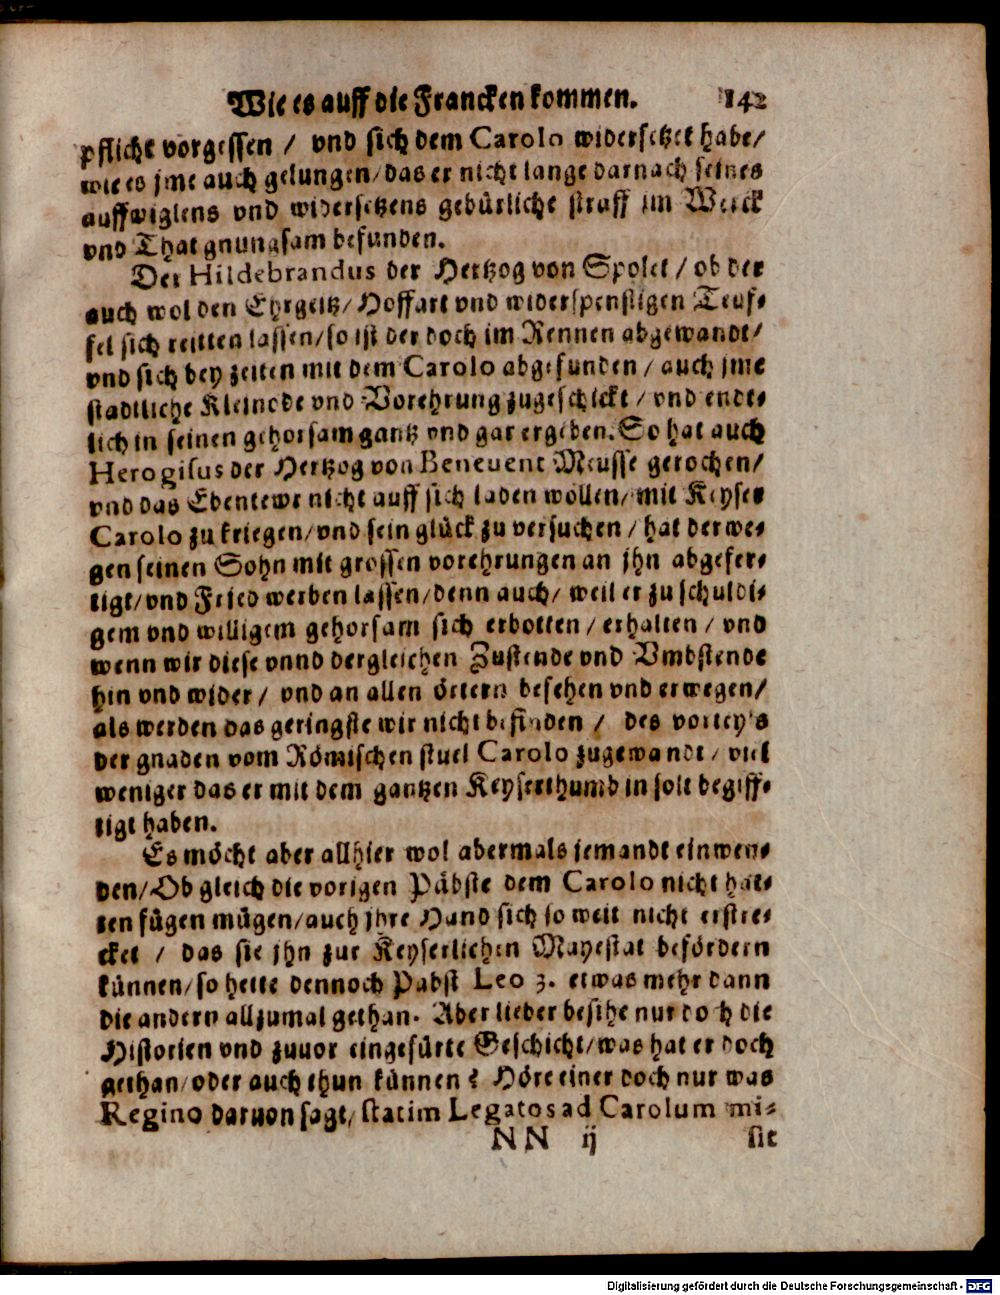 Wie es auff die Francken kommen. 142
pflicht vorgessen / vnd sich dem Carolo widersetzet habe/
wie es jme auch gelungen/das er nicht lange darnach seines
auffwiglens vnd widersetzens gebürliche straff im Werck
vnd That gnungsam befunden.
Der Hildebrandus der Hertzog von Spolet / ob der
auch wol den Ehrgeitz/Hoffart vnd widerspenstigen Teuf-
fel sich reitten lassen/so ist der doch im Rennen abgewandt/
vnd sich bey zeiten mit dem Carolo abgefunden / auch jme
stadtliche Kleinode vnd Vorehrung zugeschickt / vnd endt-
lich in seinen gehorsam gantz vnd gar ergeben. So hat auch
Herogisus der Hertzog von Beneuent Meusse gerochen/
vnd das Ebentewr nicht auff sich laden wöllen/mit Keyser
Carolo zu kriegen/vnd sein glück zu versuchen / hat derwe-
gen seinen Sohn mit grossen vorehrungen an jhn abgefer-
tigt/vnd Fried werben lassen/denn auch/ weil er zu schuldi-
gem vnd willigem gehorsam sich erbotten / erhalten / vnd
wenn wir diese vnnd dergleichen Zustende vnd Vmbstende
hin vnd wider / vnd an allen örtern besehen vnd erwegen/
als werden das geringste wir nicht befinden / des vorteys
der gnaden vom Römischen stuel Carolo zugewandt / viel
weniger das er mit dem gantzen Keyserthumb in solt begiff-
tigt haben.
Es möcht aber allhier wol abermals jemandt einwen-
den/Ob gleich die vorigen Päbste dem Carolo nicht hat-
ten fügen mügen/auch jhre Hand sich so weit nicht erstre-
cket / das sie jhn zur Keyserlichen Mayestat befördern
künnen/so hette dennoch Pabst Leo 3. etwas mehr dann
die andern allzumal gethan. Aber lieber besihe nur doch die
Historien vnd zuuor eingefürte Geschicht/was hat er doch
gethan/oder auch thun künnen? Höre einer doch nur was
Regino daruon sagt/ statim Legatos ad Carolum mi-
NN ij sit
Digitalisierung gefördert durch die Deutsche Forschungsgemeinschaft - DFG